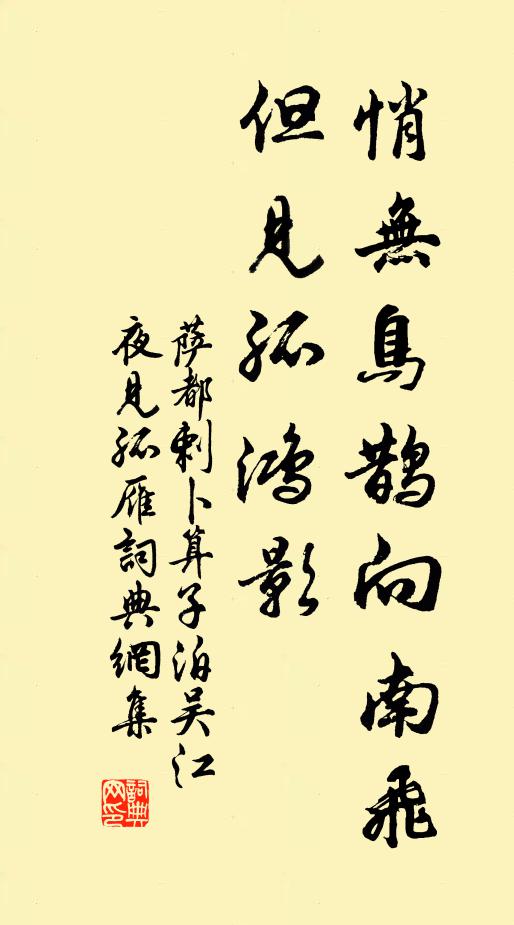 悄無鳥鵲向南飛
但見孤鴻影
薩都剌卜算子泊吳江
夜見孤雁詞典網集
詞典
网印